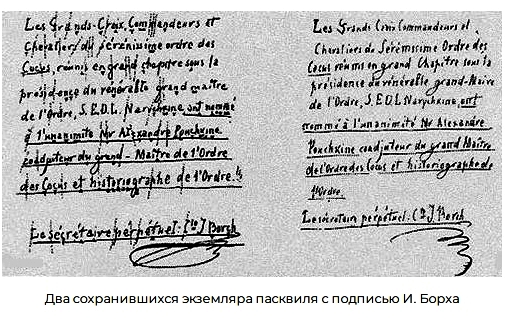 Les Grands-Croix, Commandeurs et
Chevaliers du sérénissime ordre des
Cocus, réunis en grand chapitre sous la
présidence du vénérable grand-maître
de l'ordre, S. E. D. L. Narychkine, ont nommé
à l'unanimité Mr Alexandre Pouchkine
coadjuteur du grand-Maître de l'Ordre
des Cocus et historiographe de l'Ordre.
Le sécrétaire perpétuel: Cte J. Borch
Les Grands Croix Commandeurs et
Chevaliers du Sérénissime Ordre des
Cocus réunis en grand Chapitre sous la
présidence du vénérable grand-Maître
de l'Ordre, S.E.D.L Narychkine, ont
nommé à l'unanimité Mr Alexandre
Pouchkine coadjuteur du grand Maître
de l'Ordre des Cocus et historiographe de
l'Ordre.
Le sécrétaire perpétuel: Cte J. Borch
Два сохранившихся экземляра пасквиля с подписью И. Борха